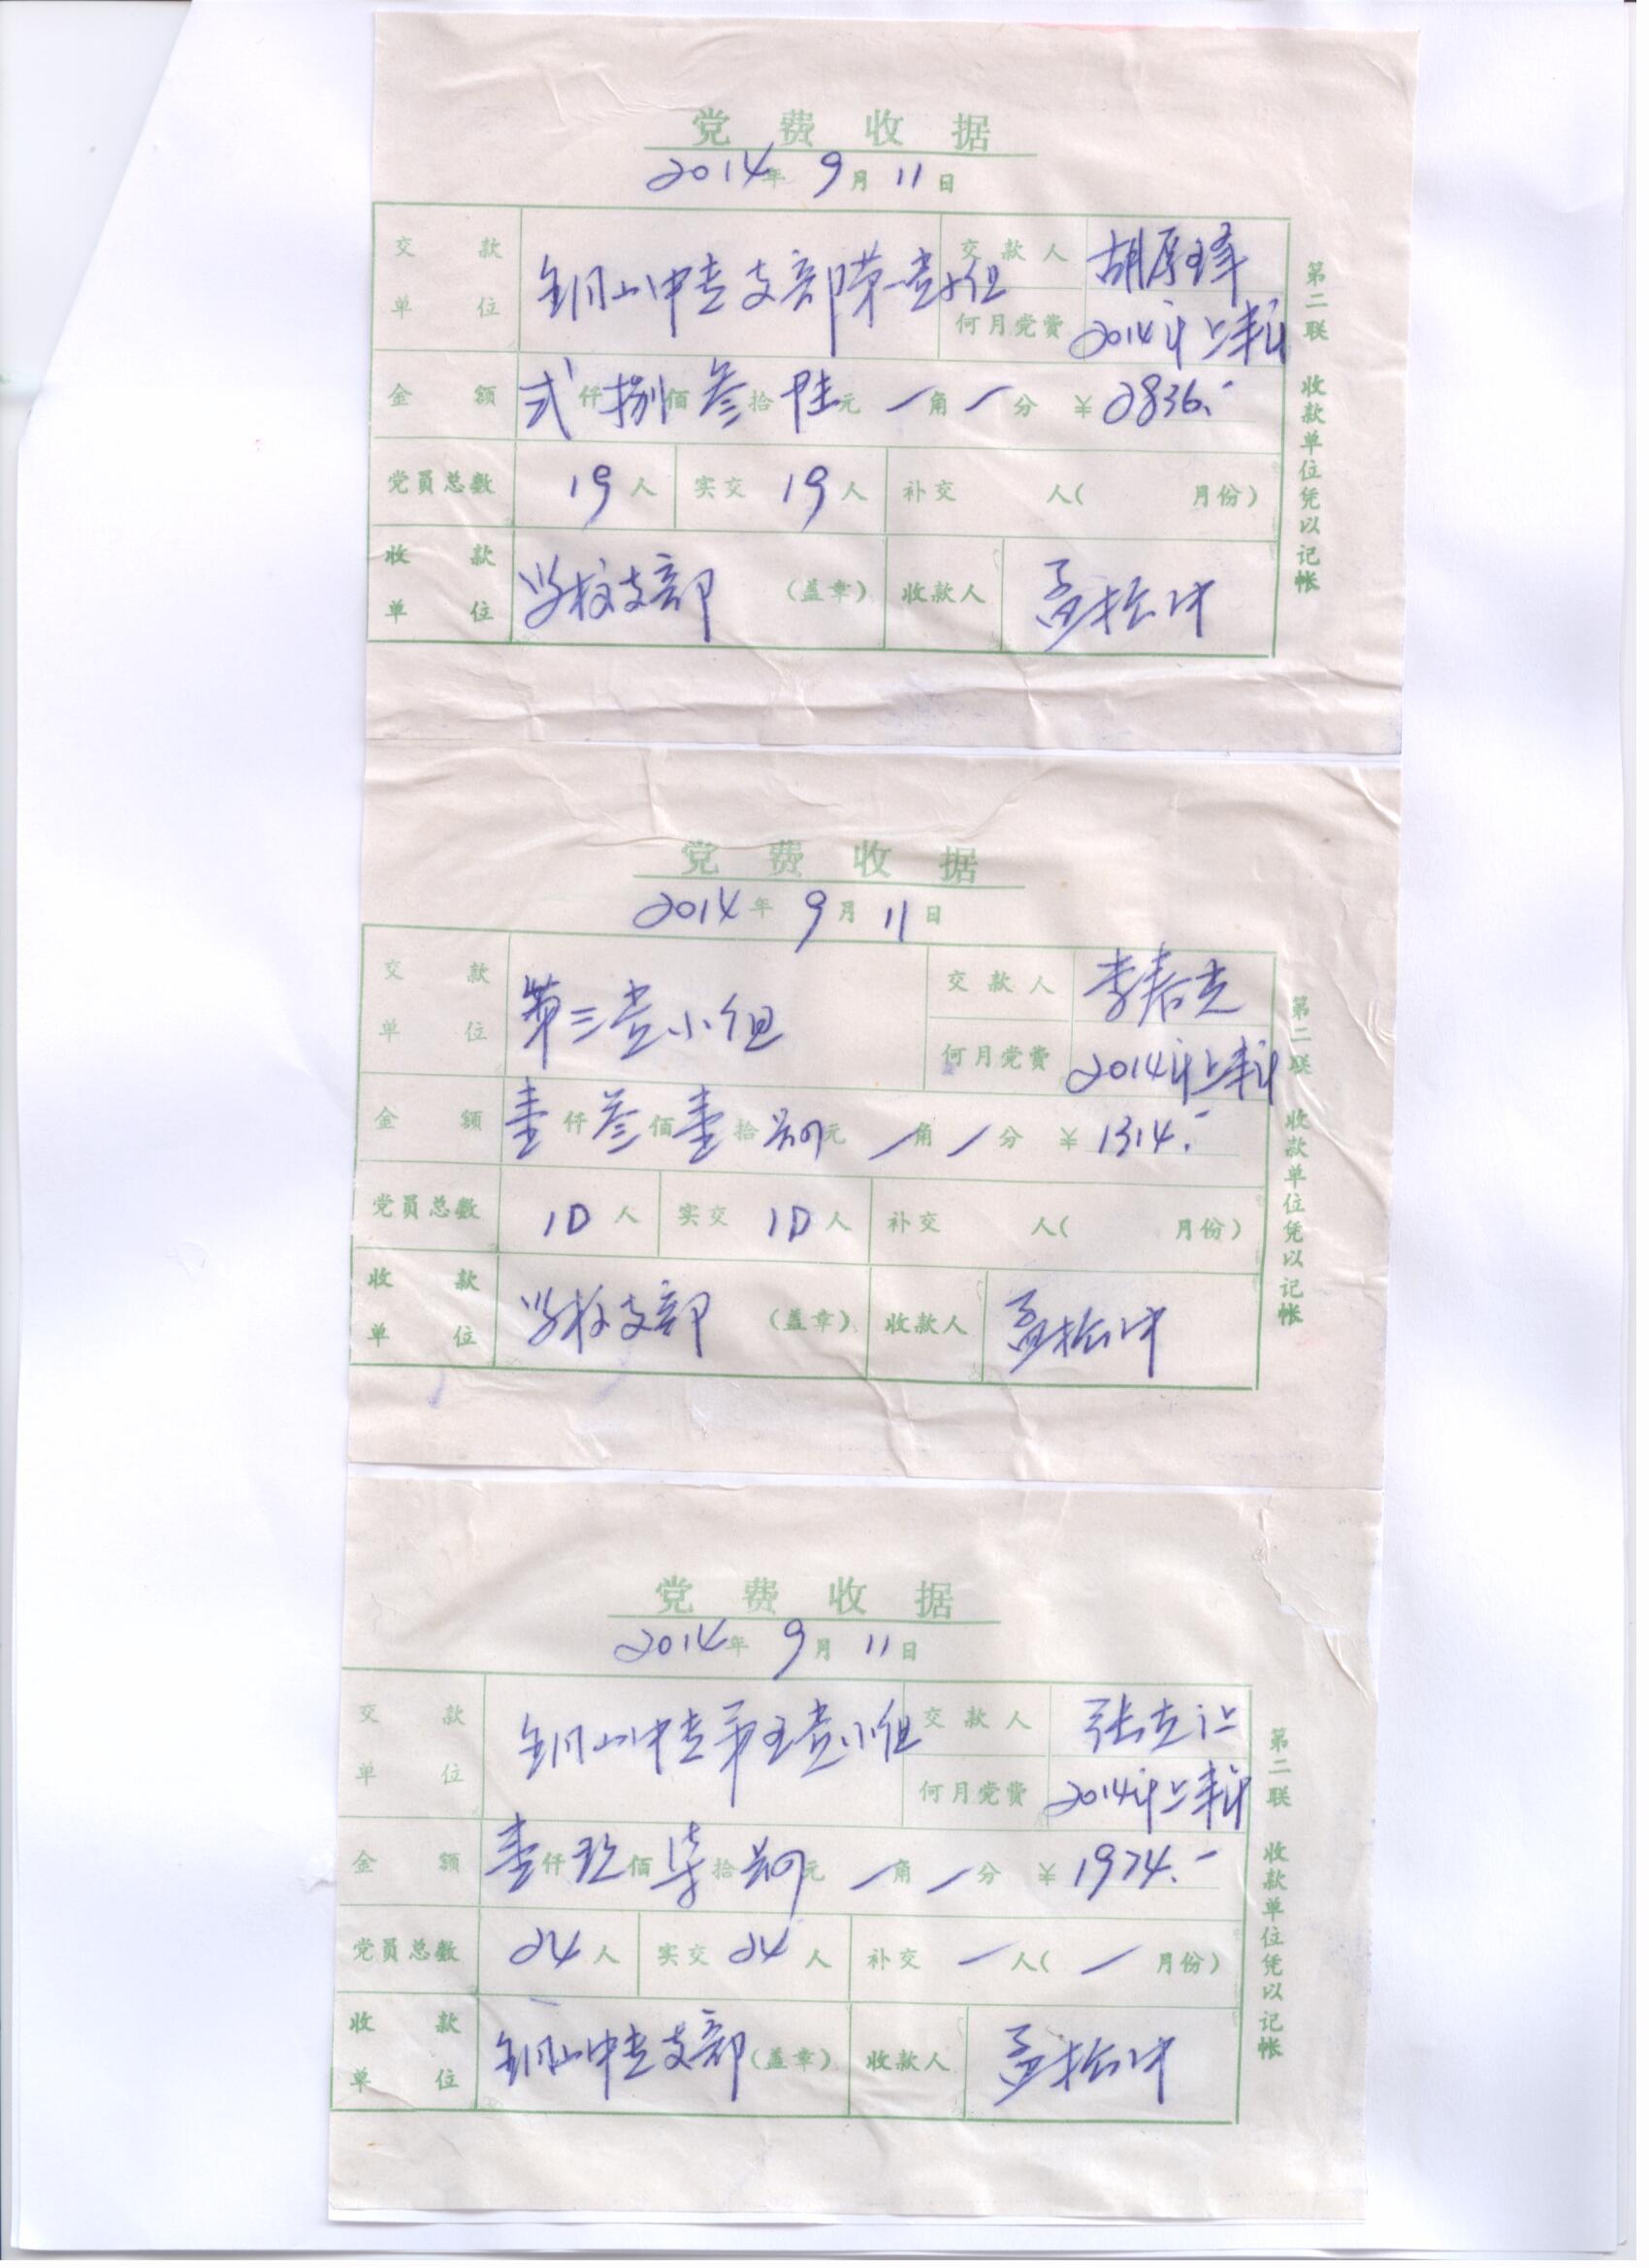 党费收据
2014年 9月 11日
交款单位 铜山中专支部第一党小组 交款人 胡厚峰
何月党费 2014年上半年
金额 弍仟捌佰叁拾陆元 一角 一分 ¥2836.-
党员总数 19人 实交 19人 补交 人( 月份)
收款单位 学校支部 (盖章) 收款人 孟
第二联 收款单位凭以记帐
党费收据
2014年 9月 11日
交款单位 第三党小组 交款人 李春
何月党费 2014年上半年
金额 壹仟叁佰壹拾肆元 一角 一分 ¥1314.-
党员总数 10人 实交 10人 补交 人( 月份)
收款单位 学校支部 (盖章) 收款人 孟
第二联 收款单位凭以记帐
党费收据
2014年 9月 11日
交款单位 铜山中专第五党小组 交款人 张
何月党费 2014年上半年
金额 壹仟玖佰柒拾肆元 一角 一分 ¥1974.-
党员总数 24人 实交 24人 补交 一人( 一月份)
收款单位 铜山中专支部 (盖章) 收款人 孟
第二联 收款单位凭以记帐